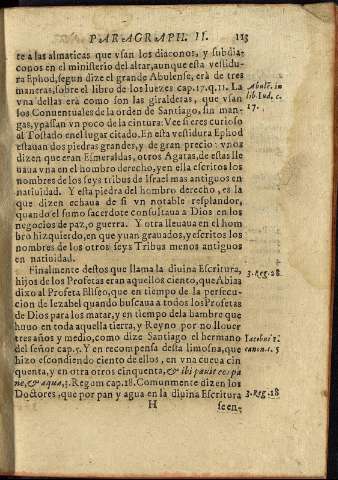 PARAGRAPH. II. 113
te a las almaticas que vsan los diaconos, y subdia-
conos en el ministerio del altar, aunque esta vestidu
ra Ephod, segun dize el grande Abulense, erā de tres
maneras, sobre el libro de los Iuezes cap. 17. q. 11. La
Abulē. in
lib. Iud. c.
17.
vna dellas erā como son las giraldetas, que vsan
los Conuentuales de la orden de Santiago, sin man-
gas, y passan vn poco de la cintura: Vee si eres curioso
al Tostado en el lugar citado. En esta vestidura Ephod
estauan dos piedras grandes, y de gran precio: vnos
dizen que eran Esmeraldas, otros Agatas, de estas lle
uaua vna en el hombro derecho, y en ella escritos los
nombres de los seys tribus de Israel mas antiguos en
natiuidad. Y esta piedra del hombro derecho, es la
que dizen echaua de si vn notable resplandor,
quando el sumo sacerdote consultaua a Dios en los
negocios de paz, o guerra. Y otra lleuaua en el hom
bro hizquierdo, en que yuan grauados, y escritos los
nombres de los otros seys Tribus menos antiguos
en natiuidad.
Finalmente destos que llama la diuina Escritura,
3. Reg. 28.
hijos de los Profetas eran aquellos ciento, que Abias
dixo al Profeta Eliseo, que en tiempo de la persecu-
cion de Iezabel quando buscaua a todos los Profetas
de Dios para los matar, y en tiempo de la hambre que
huuo en toda aquella tierra, y Reyno por no llouer
tres años y medio, como dize Santiago el hermano
Iacobui
canon. c. 5
del señor cap. 5. Y en recompensa desta limosna, que
hizo escondiendo ciento de ellos, en vna cueua cin
quenta, y en otra otros cinquenta, & ibi pauit eos pa
ne, & aqua, 3. Regum cap. 18. Comunmente dizen los
3. Reg. 18
Doctores, que por pan y agua en la diuina Escritura
H se en-